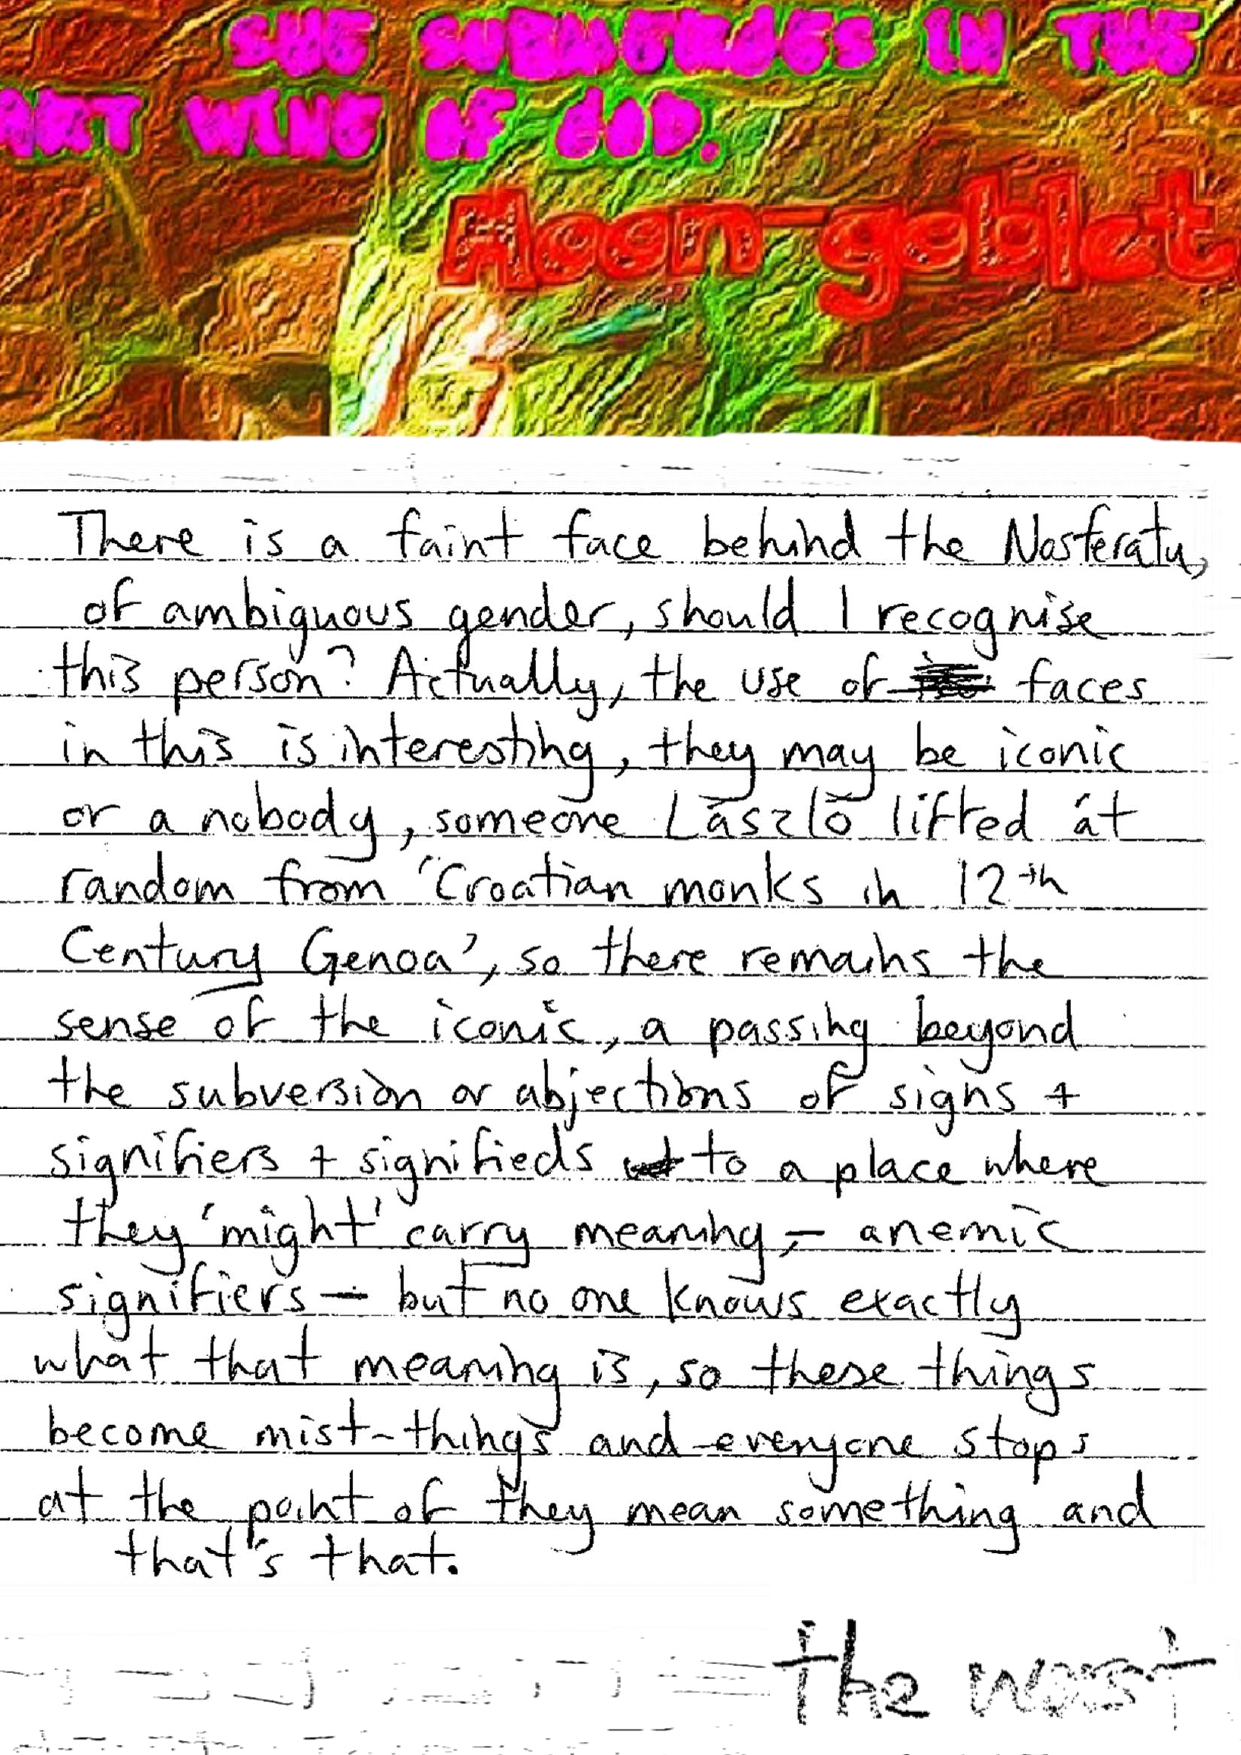 SHE SUBMERGES IN THE
ART WING OF GOD.
Moon-goblet
There is a faint face behind the Nosferatu,
of ambiguous gender, should I recognise
this person? Actually, the use of faces
in this is interesting, they may be iconic
or a nobody, someone László lifted at
random from 'Croatian monks in 12th
Century Genoa', so there remains the
sense of the iconic, a passing beyond
the subversion or abjections of signs +
signifiers + signifieds to a place where
they 'might' carry meaning, – anemic
signifiers – but no one knows exactly
what that meaning is, so these things
become mist-things and everyone stops
at the point of they mean something and
that's that.
the worst